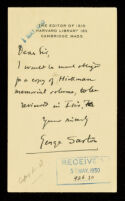 THE EDITOR OF ISIS
HARVARD LIBRARY 185
CAMBRIDGE MASS
Dear Sir,
I would be much obliged
for a copy of Hickman
memorial volume, to be
reviewed in Isis,
Yours sincerely
George Sarton
RECEIVED
MAY 1930